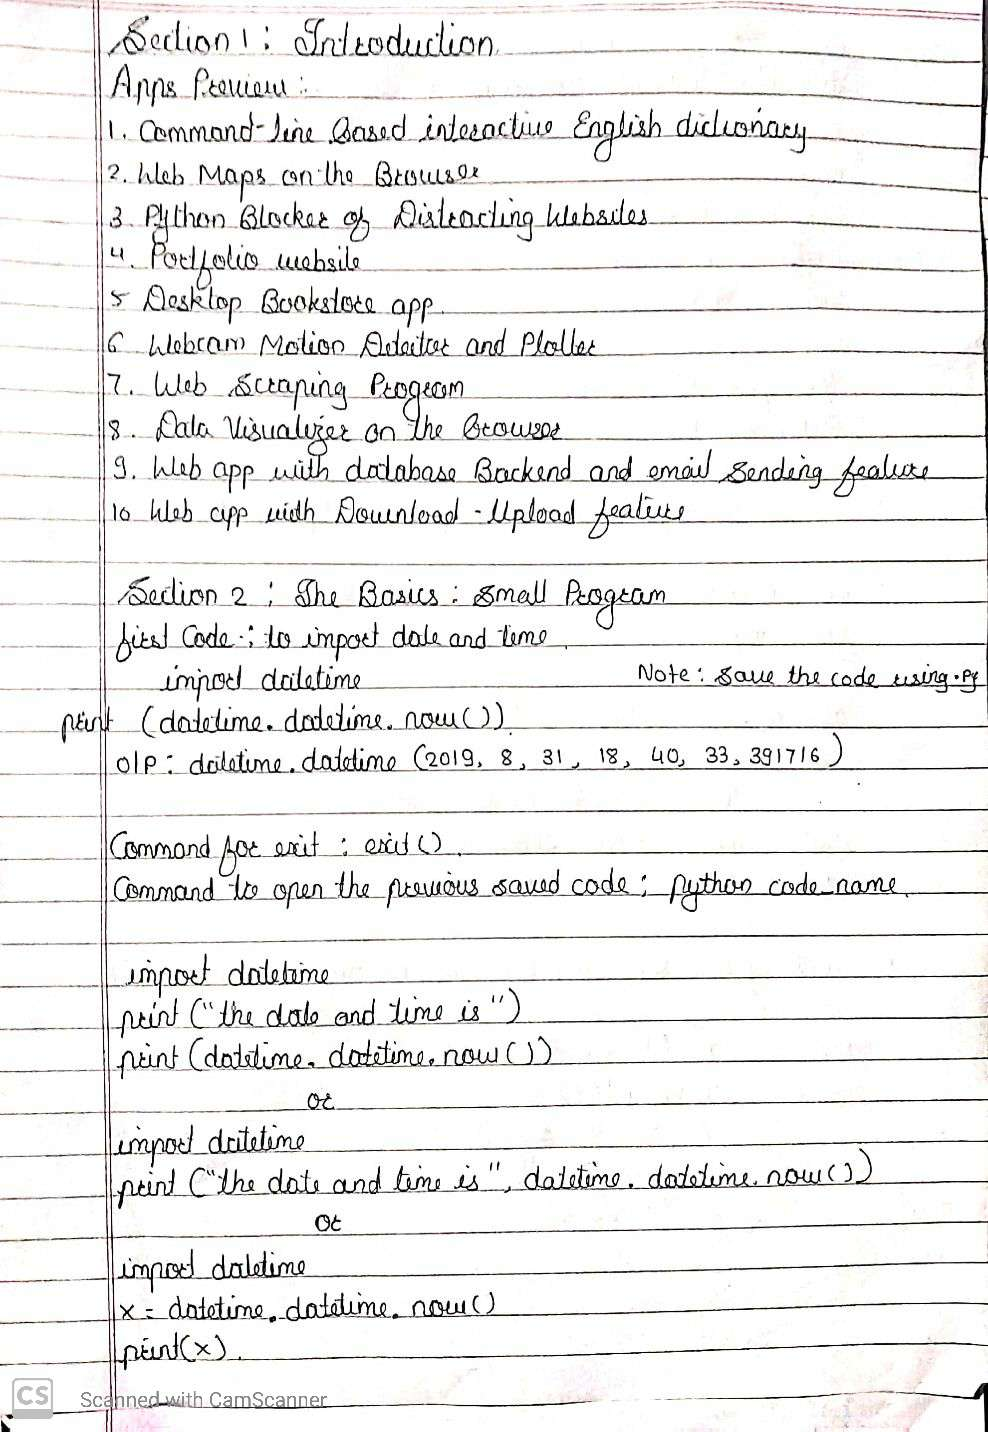 Section 1 : Introduction
Apps Preview :
1. Command-line Based interactive English dictionary
2. Web Maps on the Browser
3. Python Blocker of Distracting Websites
4. Portfolio website
5 Desktop Bookstore app.
6 Webcam Motion Detector and Plotter
7. Web Scraping Program
8. Data Visualizer on the Browser
9. Web app with database Backend and email sending feature
10 Web app with Download - Upload feature
Section 2 : The Basics : Small Program
first Code : to import date and time
import datetime Note : Save the code using .py
print (datetime. datetime. now())
o/p : datetime. datetime (2019, 8, 31, 18, 40, 33, 391716)
Command for exit : exit().
Command to open the previous saved code : python code_name.
import datetime
print ("the date and time is")
print (datetime. datetime. now())
or
import datetime
print ("the date and time is", datetime. datetime. now())
or
import datetime
x = datetime. datetime. now()
print(x).
CS Scanned with CamScanner